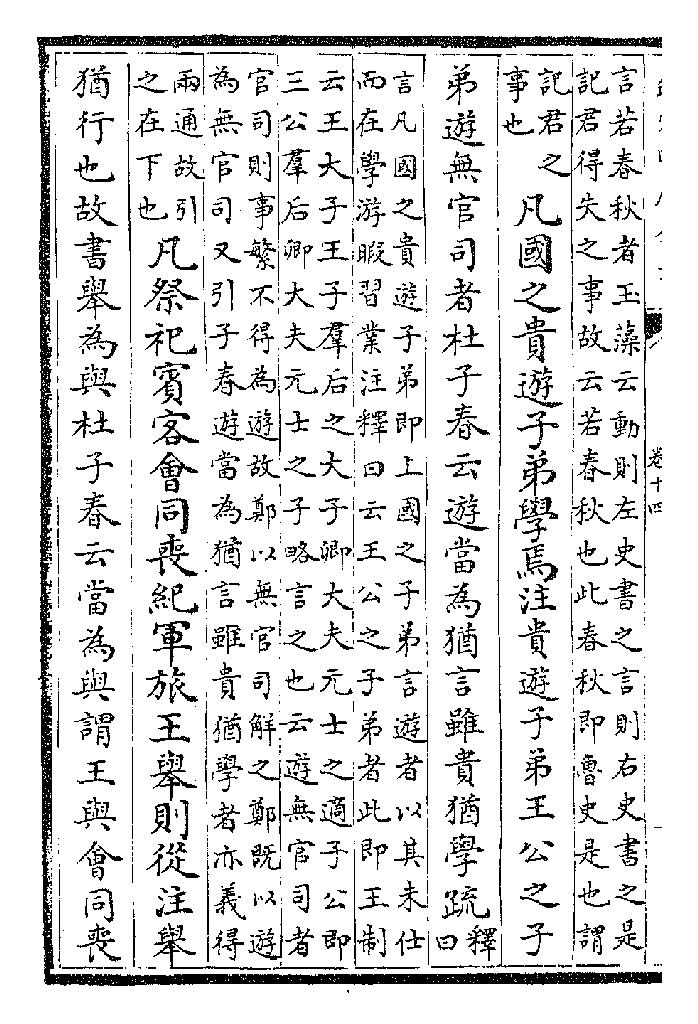 卷十四
言若春秋者玉藻云動則左史書之言則右史書之是
記君得失之事故云若春秋也此春秋即魯史是也謂
記君之
事也
凡國之貴遊子弟學焉注貴遊子弟王公之子
弟遊無官司者杜子春云遊當為猶言雖貴猶學疏
釋
曰
言凡國之貴遊子弟即上國之子弟言遊者以其未仕
而在學游暇習業注釋曰云王公之子弟者此即王制
云王大子王子羣后之大子卿大夫元士之適子公即
三公羣后卿大夫元士之子略言之也云遊無官司者
官司則事繁不得為遊故鄭以無官司解之鄭既以遊
為無官司又引子春遊當為猶言雖貴猶學者亦義得
兩通故引
之在下也
凡祭祀賓客會同喪紀軍旅王舉則從注舉
猶行也故書舉為與杜子春云當為與謂王與會同喪